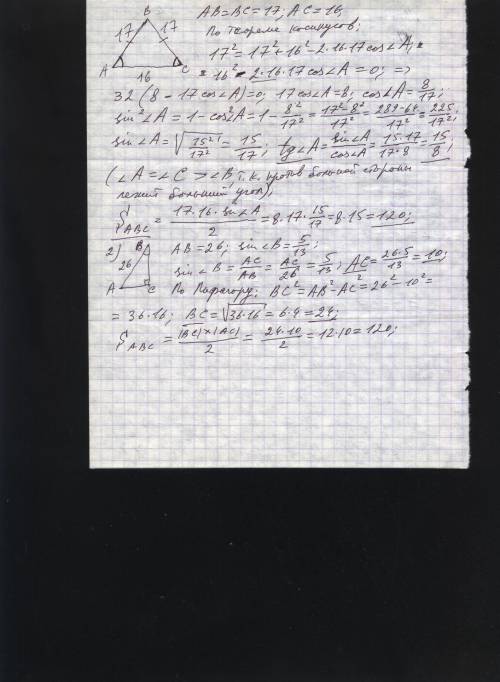 B
17 17
A 16 C
AB=BC=17; AC=16;
По теореме косинусов;
17²=17²+16²-2·16·17cos∠A;
16²-2·16·17cos∠A=0; =>
32(8-17cos∠A)=0; 17cos∠A=8; cos∠A=8/17;
sin²∠A=1-cos²∠A=1-8²/17²=(17²-8²)/17²=(289-64)/17²=225/17²;
sin∠A=√(15²/17²)=15/17; tg∠A=sin∠A/cos∠A=(15·17)/(17·8)=15/8;
(∠A=∠C>∠B т.к. против большой стороны
лежит больший угол);
S ABC=(17·16·sin∠A)/2=8·17·15/17=8·15=120;
2) B
26
A C
AB=26; sin∠B=5/13;
sin∠B=AC/AB=AC/26=5/13; AC=(26·5)/13=10;
По Пифагору: BC²=AB²-AC²=26²-10²=
=36·16; BC=√(36·16)=6·4=24;
S ABC=(|BC|×|AC|)/2=(24·10)/2=12·10=120;